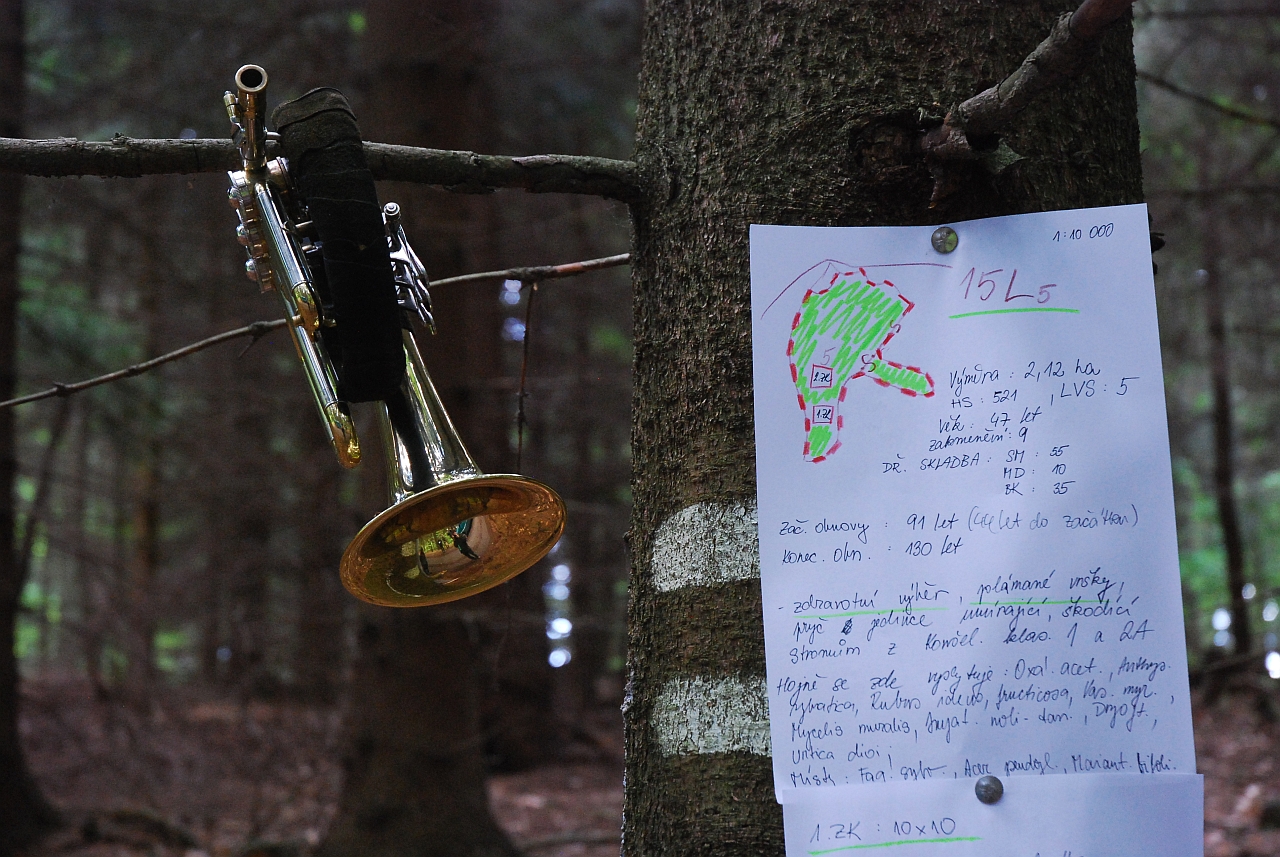 1:10 000
15L5
5
1.ZK
1.ZK
Výměra : 2,12 ha
HS : 521 , LVS : 5
Věk : 47 let
zakmenění : 9
DŘ. SKLADBA : SM : 55
MD : 10
BK : 35
Zač. obnovy : 91 let (44 let do začátku)
Konec. obn. : 130 let
- zdravotní výběr, polámané vršky,
pryč jedince umírající, škodící
stromům z Konšel. klas. 1 a 2A
Hojně se zde vyskytuje : Oxal. acet.,
Rubus ideus, fructicosa, Vac. myr.,
Mycelis muralis, Impat. noli-tan.,
Urtica dioi!
Místy : Fag. sylv., Acer pseudopl., Maiant. bifoli.
1.ZK : 10x10